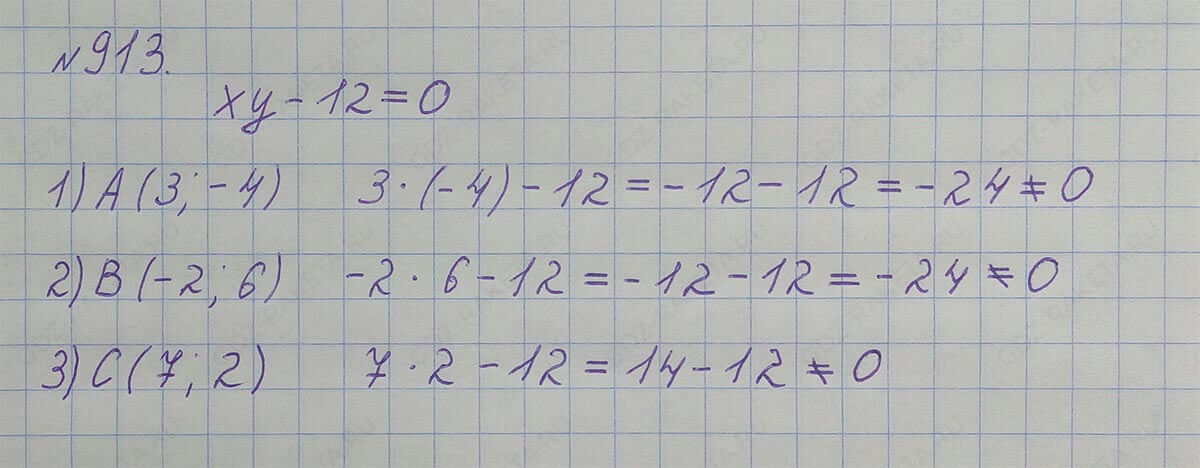 №913.
xy - 12 = 0
1) A (3; -4) 3 · (-4) - 12 = -12 - 12 = -24 ≠ 0
2) B (-2; 6) -2 · 6 - 12 = -12 - 12 = -24 ≠ 0
3) C (7; 2) 7 · 2 - 12 = 14 - 12 ≠ 0